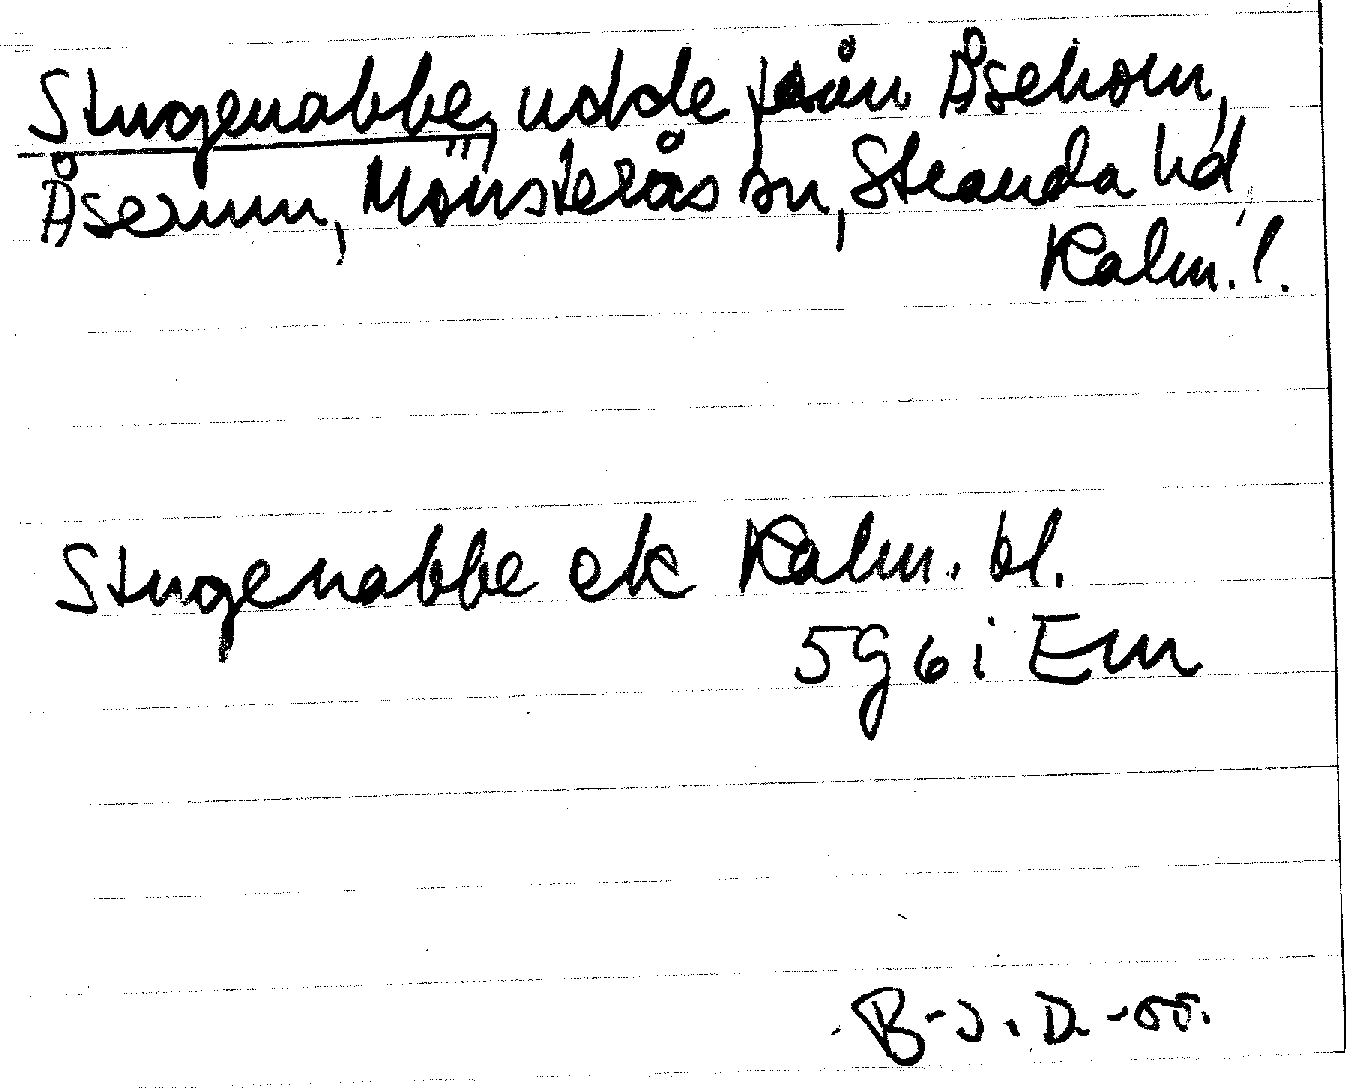 Stugenabbe, udde från Åseholm,
Åserum, Mönsterås sn, Stranda hd,
Kalm. l.
Stugenabbe ek Kalm. bl.
5g6i Em
B-J. D. -55.